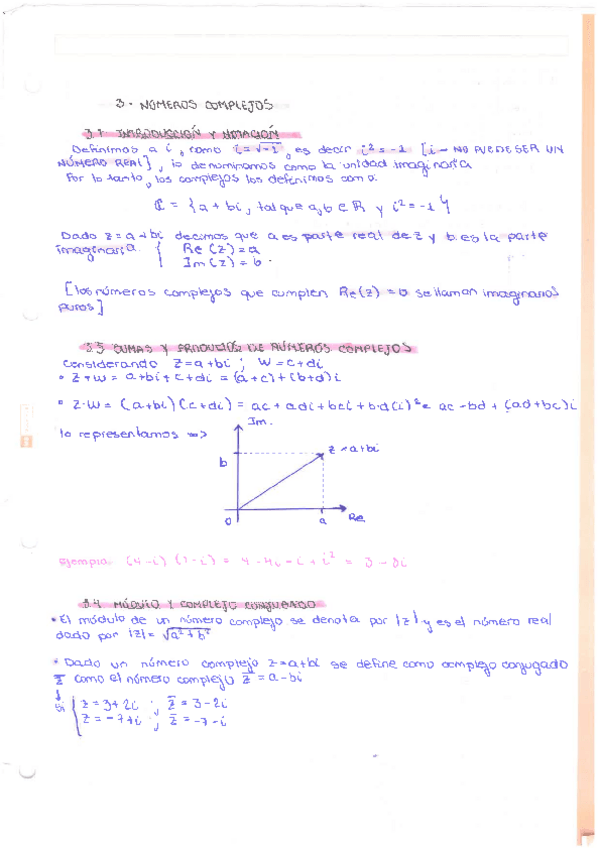 3- NÚMEROS COMPLEJOS
3.1 INTRODUCCIÓN Y NOTACIÓN
Definimos a i, como i = √-1, es decir i² = -1 [i → NO PUEDE SER UN
NÚMERO REAL], lo denominamos como la unidad imaginaria
Por lo tanto, los complejos los definimos como:
ℂ = {a + bi, tal que a, b ∈ ℝ y i² = -1}
Dado z = a + bi decimos que a es parte real de z y b es la parte
imaginaria { Re(z) = a
Im(z) = b.
[los números complejos que cumplen Re(z) = 0 se llaman imaginarios
puros]
3.3 SUMAS Y PRODUCTOS DE NÚMEROS COMPLEJOS
Considerando z = a + bi ; w = c + di
• z + w = a + bi + c + di = (a + c) + (b + d)i
• z·w = (a + bi)(c + di) = ac + adi + bci + b·d(i)² = ac - bd + (ad + bc)i
lo representamos =>
Im.
z = a + bi
b
0 a Re
ejemplo: (4-i) (1-i) = 4 - 4i - i + i² = 3 - 5i
3.4 MÓDULO Y COMPLEJO CONJUGADO
• El módulo de un número complejo se denota por |z| y es el número real
dado por |z| = √a² + b²
• Dado un número complejo z = a + bi se define como complejo conjugado
z̄ como el número complejo z̄ = a - bi
z = 3 + 2i ; z̄ = 3 - 2i
z = -7 + i ; z̄ = -7 - i